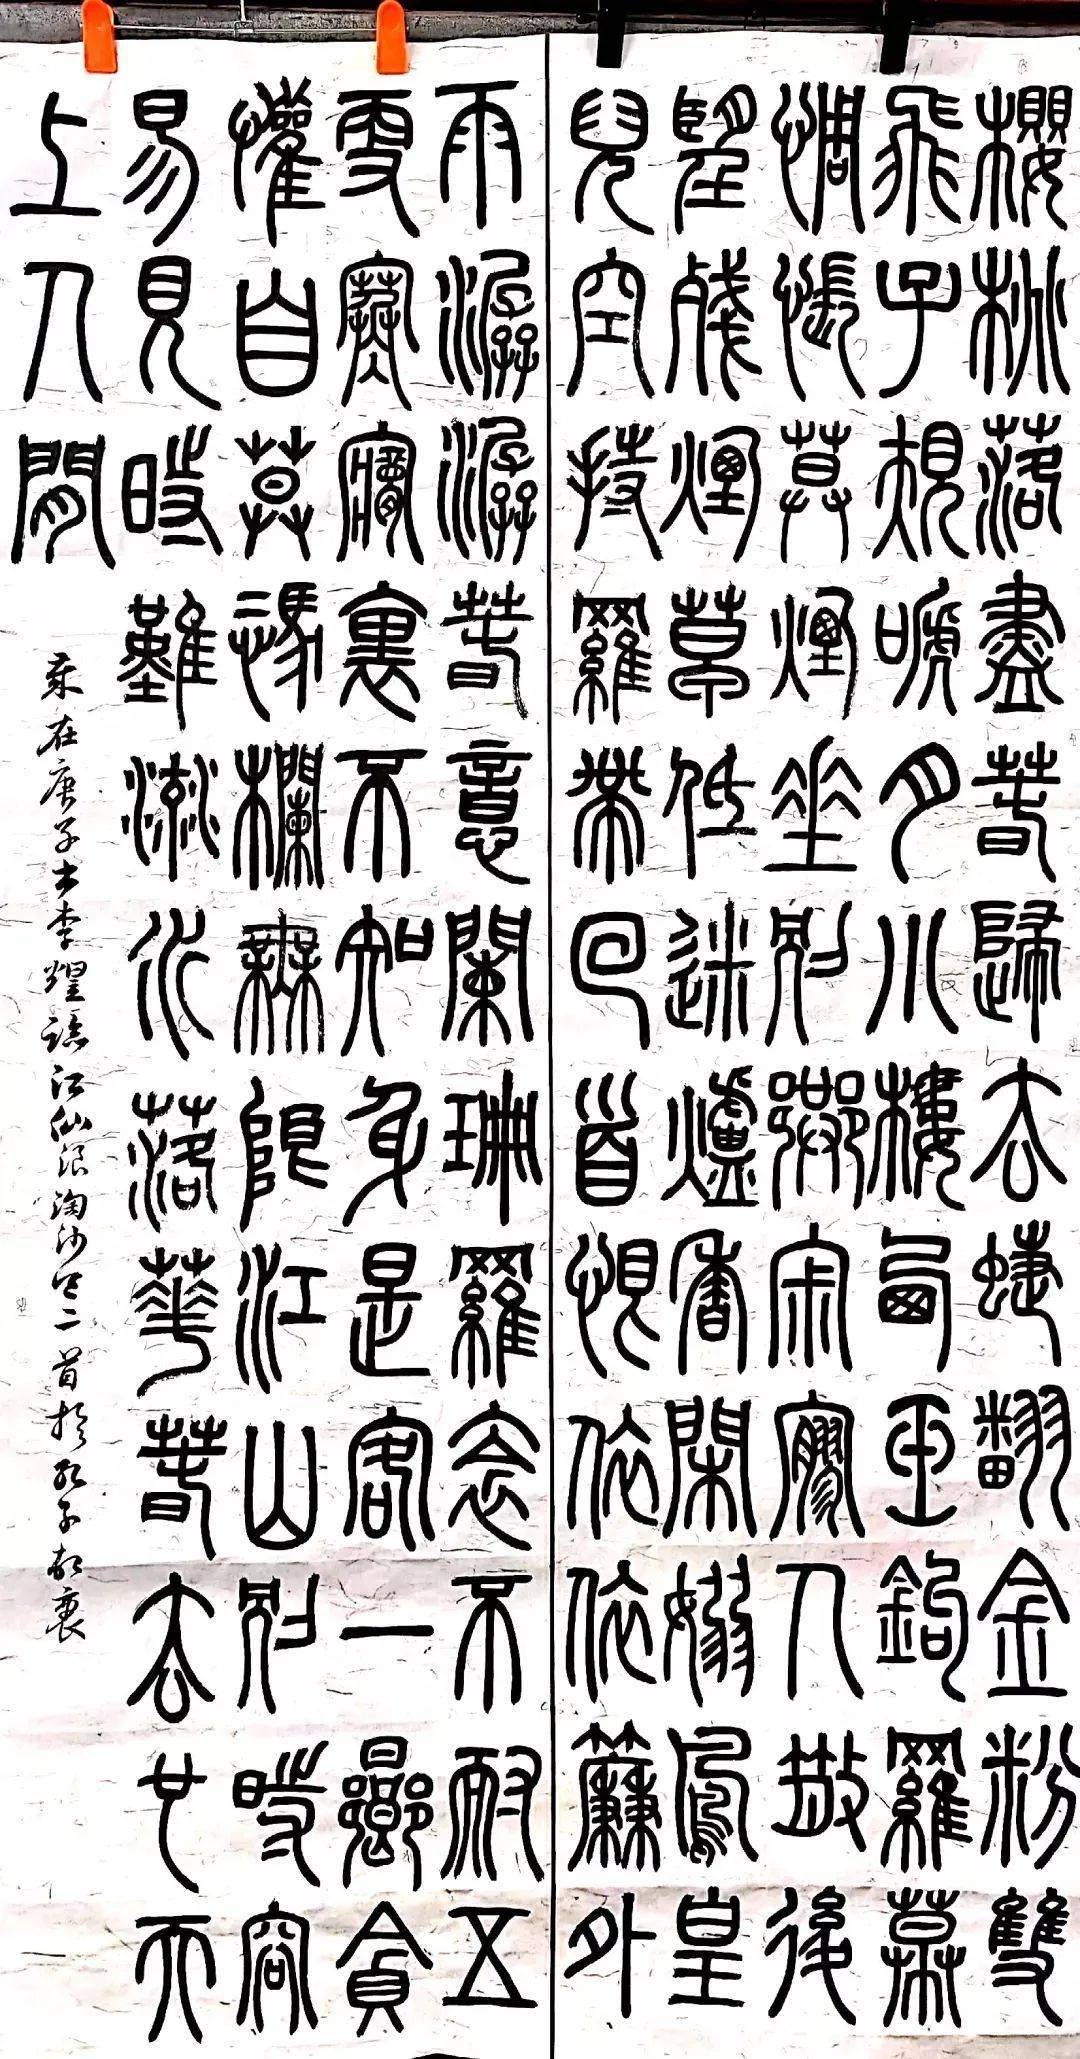 櫻桃落盡春歸去蜨翻金粉雙
飛子規嗁月小樓西玉鉤羅幕
惆悵莫煙垂別巷寂寥人散後
望殘煙草低迷爐香閒嫋鳳皇
兒空持羅帶回首恨依依簾外
雨潺潺春意闌珊羅衾不耐五
更寒夢裏不知身是客一曏貪
懽自莫憑欄無限江山別時容
易見時難流水落華春去也天
上人間
歲在庚子書李煜臨江仙浪淘沙令二首於孔子故裏